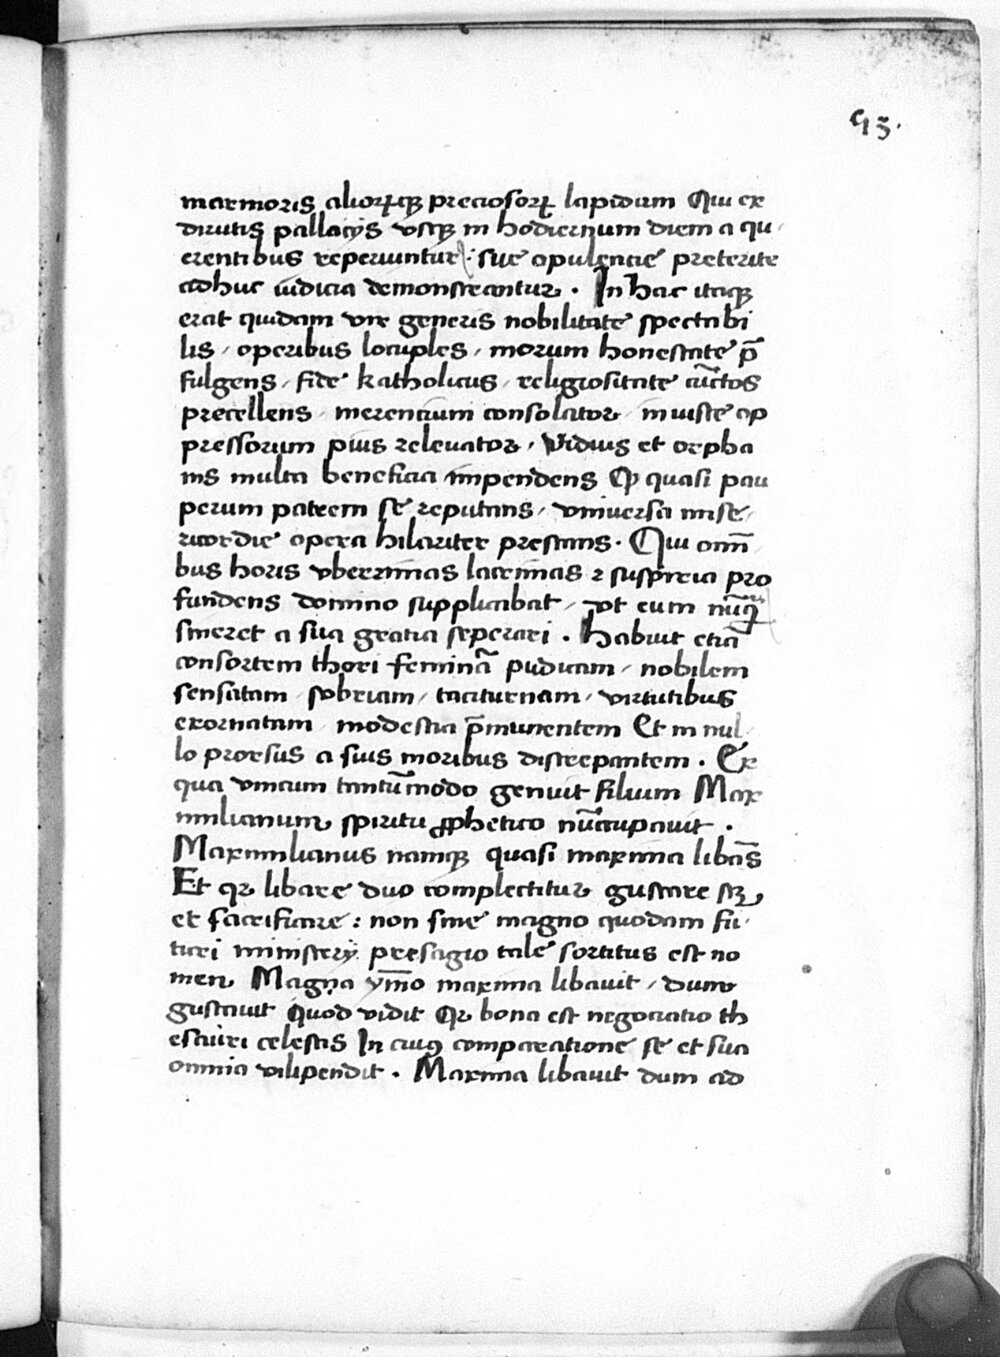 93.
marmoris aliorꝝqꝫ preciosorꝝ lapidum Qui ex
dirutis pallacijs vsqꝫ in hodiernum diem a qu
erentibus reperiuntur : sue opulencie preterite
adhuc iudicia demonstrantur . In hac itaqꝫ
erat quidam vir generis nobilitate spectabi
lis / operibus locuples / morum honestate p̄
fulgens / fide katholicus / religiositate cūctos
precellens / merencium consolator / iniuste op
pressorum pius releuator / Viduis et orpha
nis multa beneficia impendens Et quasi pau
perum patrem se reputans / vniuersa mise
ricordie opera hilariter prestans . Qui omī
bus horis vberrimas lacrimas ⁊ suspiria pro
fundens domino supplicabat / vt eum nūqͣ
sineret a sua gratia seperari . Habuit etiā
consortem thori feminā pudicam / nobilem
sensatam / sobriam / taciturnam / virtutibus
exornatam / modestia p̄munentem Et in nul
lo prorsus a suis moribus discrepantem . Ex
qua vnicum tantūmodo genuit filium Max
imilianum spiritu ꝓphetico nūcupauit .
Maximilianus namqꝫ quasi maxima libās
Et qꝛ libare duo complectitur gustare sꝫ
et sacrificare : non sine magno quodam fu
turi ministerij presagio tale sortitus est no
men Magna ym̄o maxima libauit / dum
gustauit Quod vidit Qꝛ bona est negociatio th
esauri celestis In cuiꝰ comparatione se et sua
omnia vilipendit . Maxima libauit dum ad